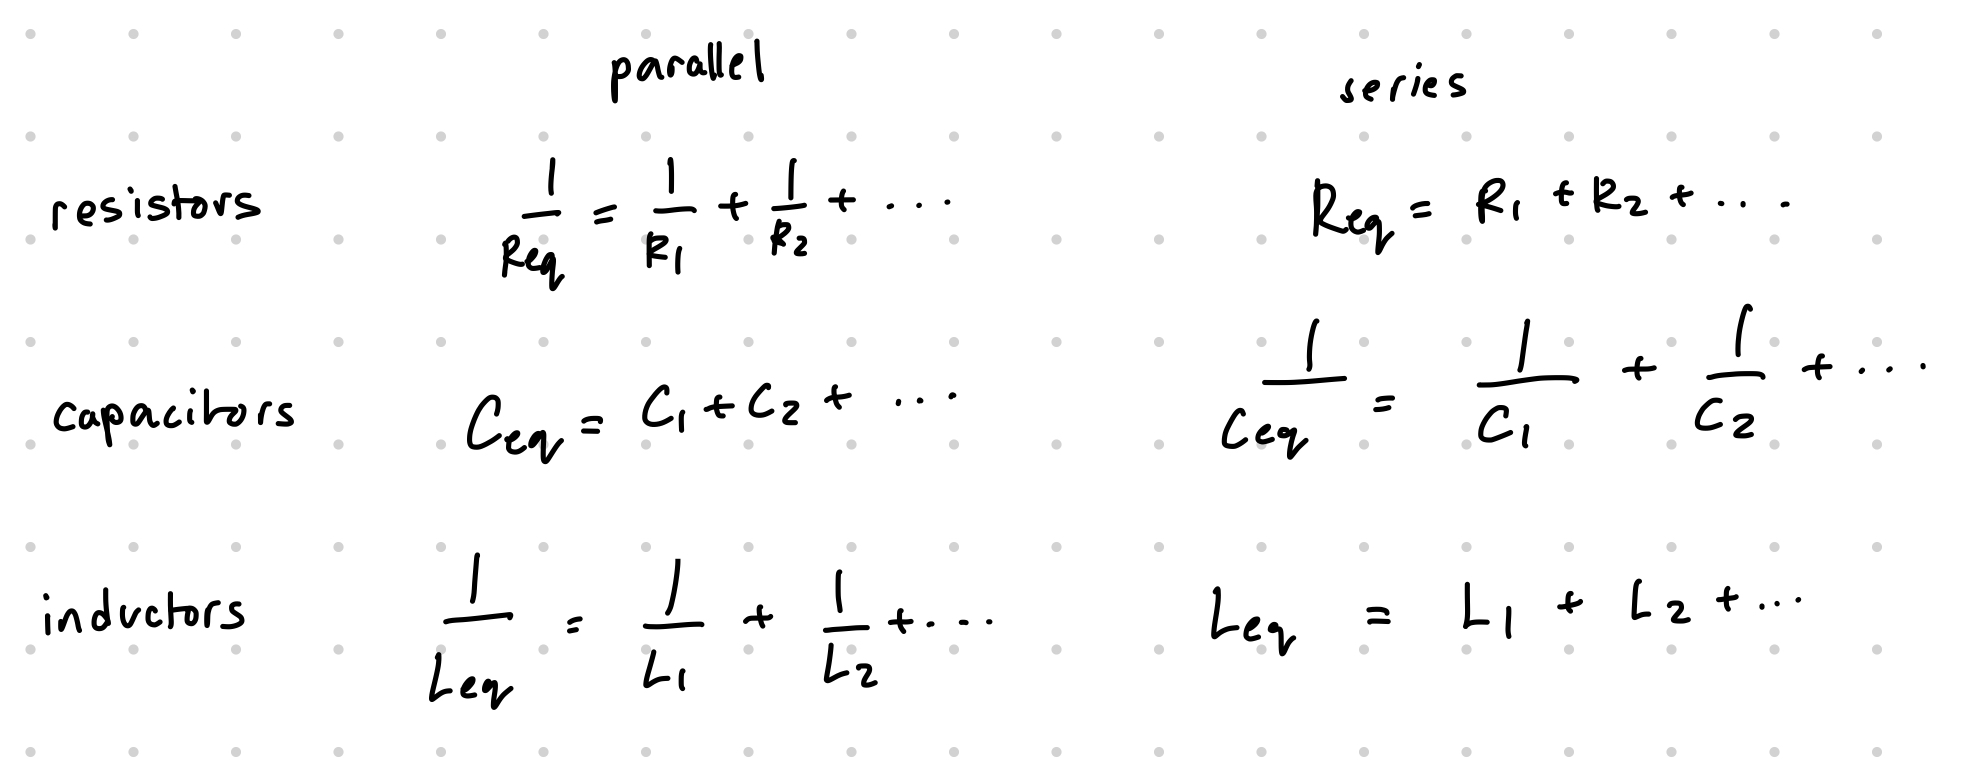 parallel series
resistors 1/Req = 1/R1 + 1/R2 + ... Req = R1 + R2 + ...
capacitors Ceq = C1 + C2 + ... 1/Ceq = 1/C1 + 1/C2 + ...
inductors 1/Leq = 1/L1 + 1/L2 + ... Leq = L1 + L2 + ...